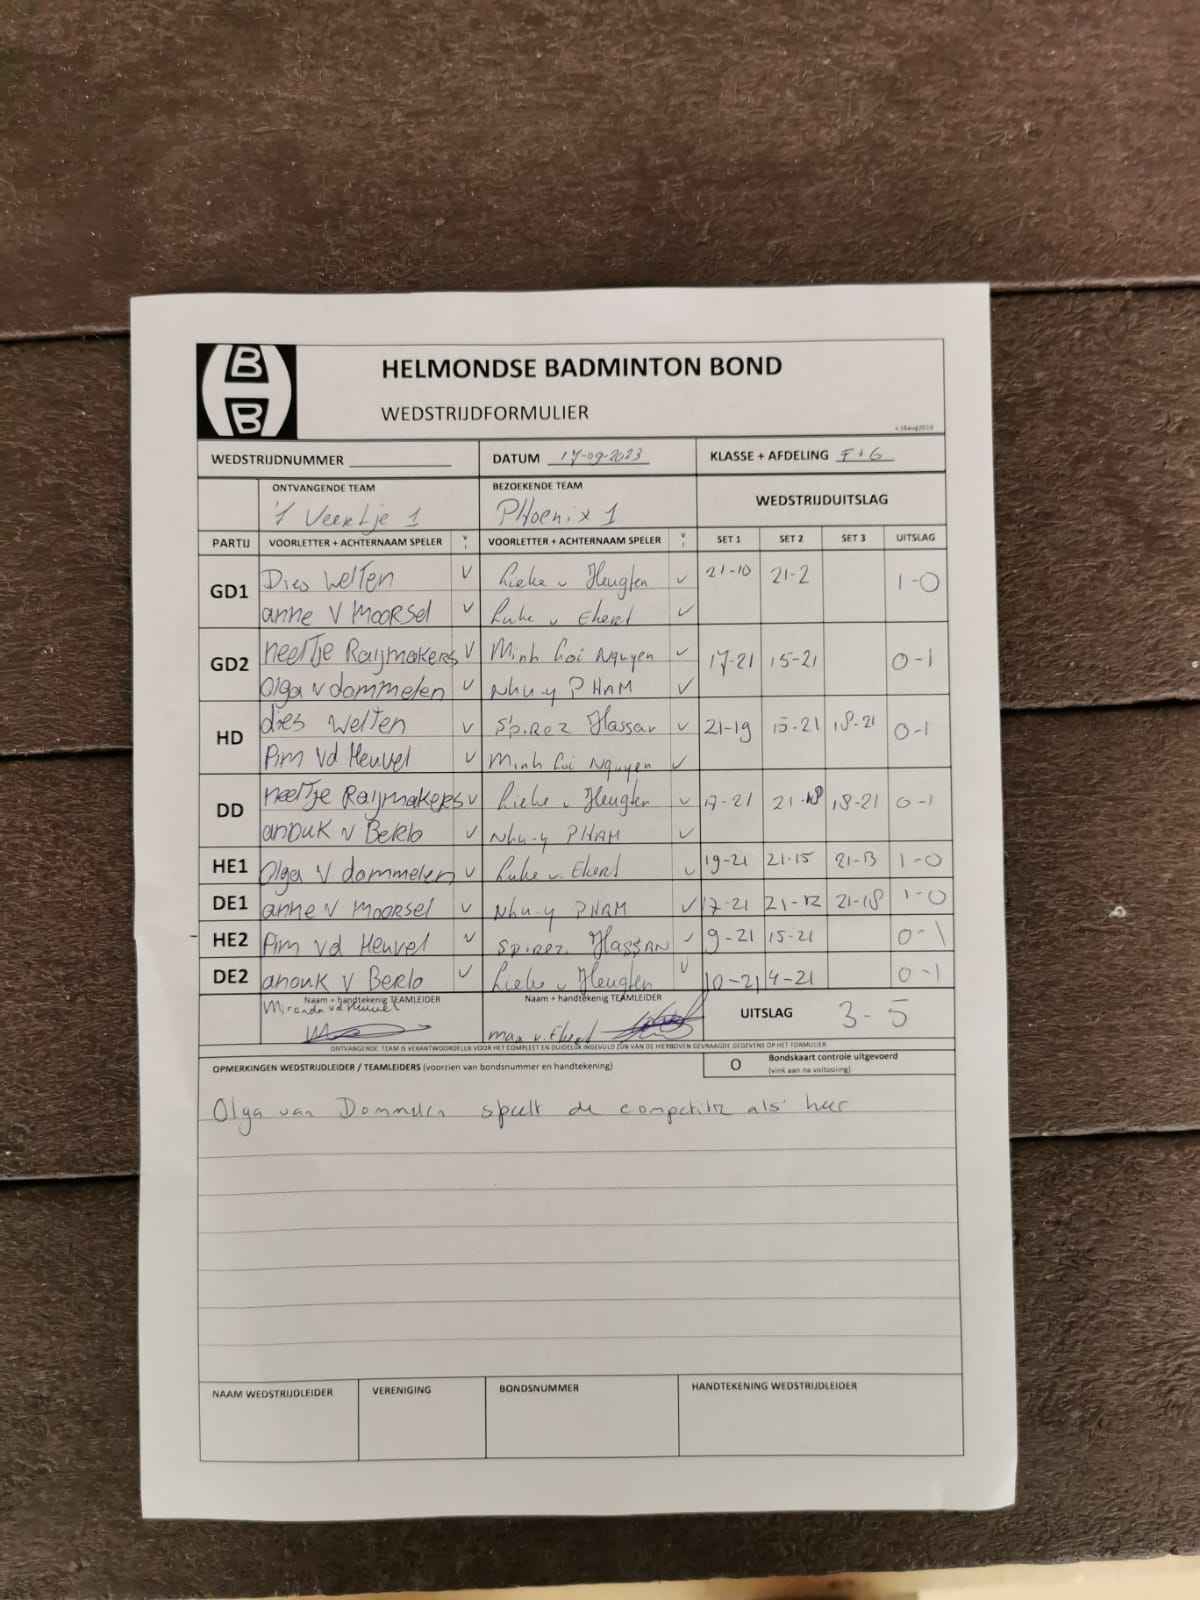 B
B
HELMONDSE BADMINTON BOND
WEDSTRIJDFORMULIER
v.16aug2010
WEDSTRIJDNUMMER DATUM 17-09-2023 KLASSE + AFDELING F+G
ONTVANGENDE TEAM BEZOEKENDE TEAM WEDSTRIJDUITSLAG
't Veertje 1 PHoenix 1
PARTIJ VOORLETTER + ACHTERNAAM SPELER V VOORLETTER + ACHTERNAAM SPELER V SET 1 SET 2 SET 3 UITSLAG
GD1 Dies Welten V Lieke v Heugten V 21-10 21-2 1-0
anne v Moorsel V Luke v Ekert V
GD2 neeltje Raijmakers V Minh Loi Nguyen V 17-21 15-21 0-1
Olga v dommelen V Nhu-y PHAM V
HD dies Welten V Spirez Hassan V 21-19 15-21 18-21 0-1
Pim vd Heuvel V Minh Loi Nguyen V
DD neeltje Raijmakers V Lieke v Heugten V 17-21 21-18 18-21 0-1
anouk v Berlo V Nhu-y PHAM V
HE1 Olga v dommelen V Luke v. Ekert V 19-21 21-15 21-13 1-0
DE1 anne v Moorsel V Nhu-y PHAM V 17-21 21-12 21-18 1-0
HE2 Pim vd Heuvel V Spirez Hassan V 9-21 15-21 0-1
DE2 anouk v Berlo V Lieke v Heugten V 10-21 4-21 0-1
Naam + handtekenig TEAMLEIDER Naam + handtekenig TEAMLEIDER UITSLAG 3-5
Miranda vd Heuvel
max v. Ekert
ONTVANGENDE TEAM IS VERANTWOORDELIJK VOOR HET COMPLEET EN DUIDELIJK INGEVULD ZIJN VAN DE HIERBOVEN GEVRAAGDE GEGEVENS OP HET FORMULIER
OPMERKINGEN WEDSTRIJDLEIDER / TEAMLEIDERS (voorzien van bondsnummer en handtekening) O Bondskaart controle uitgevoerd
(vink aan na voltooiing)
Olga van Dommelen speelt de competitie als heer
NAAM WEDSTRIJDLEIDER VERENIGING BONDSNUMMER HANDTEKENING WEDSTRIJDLEIDER